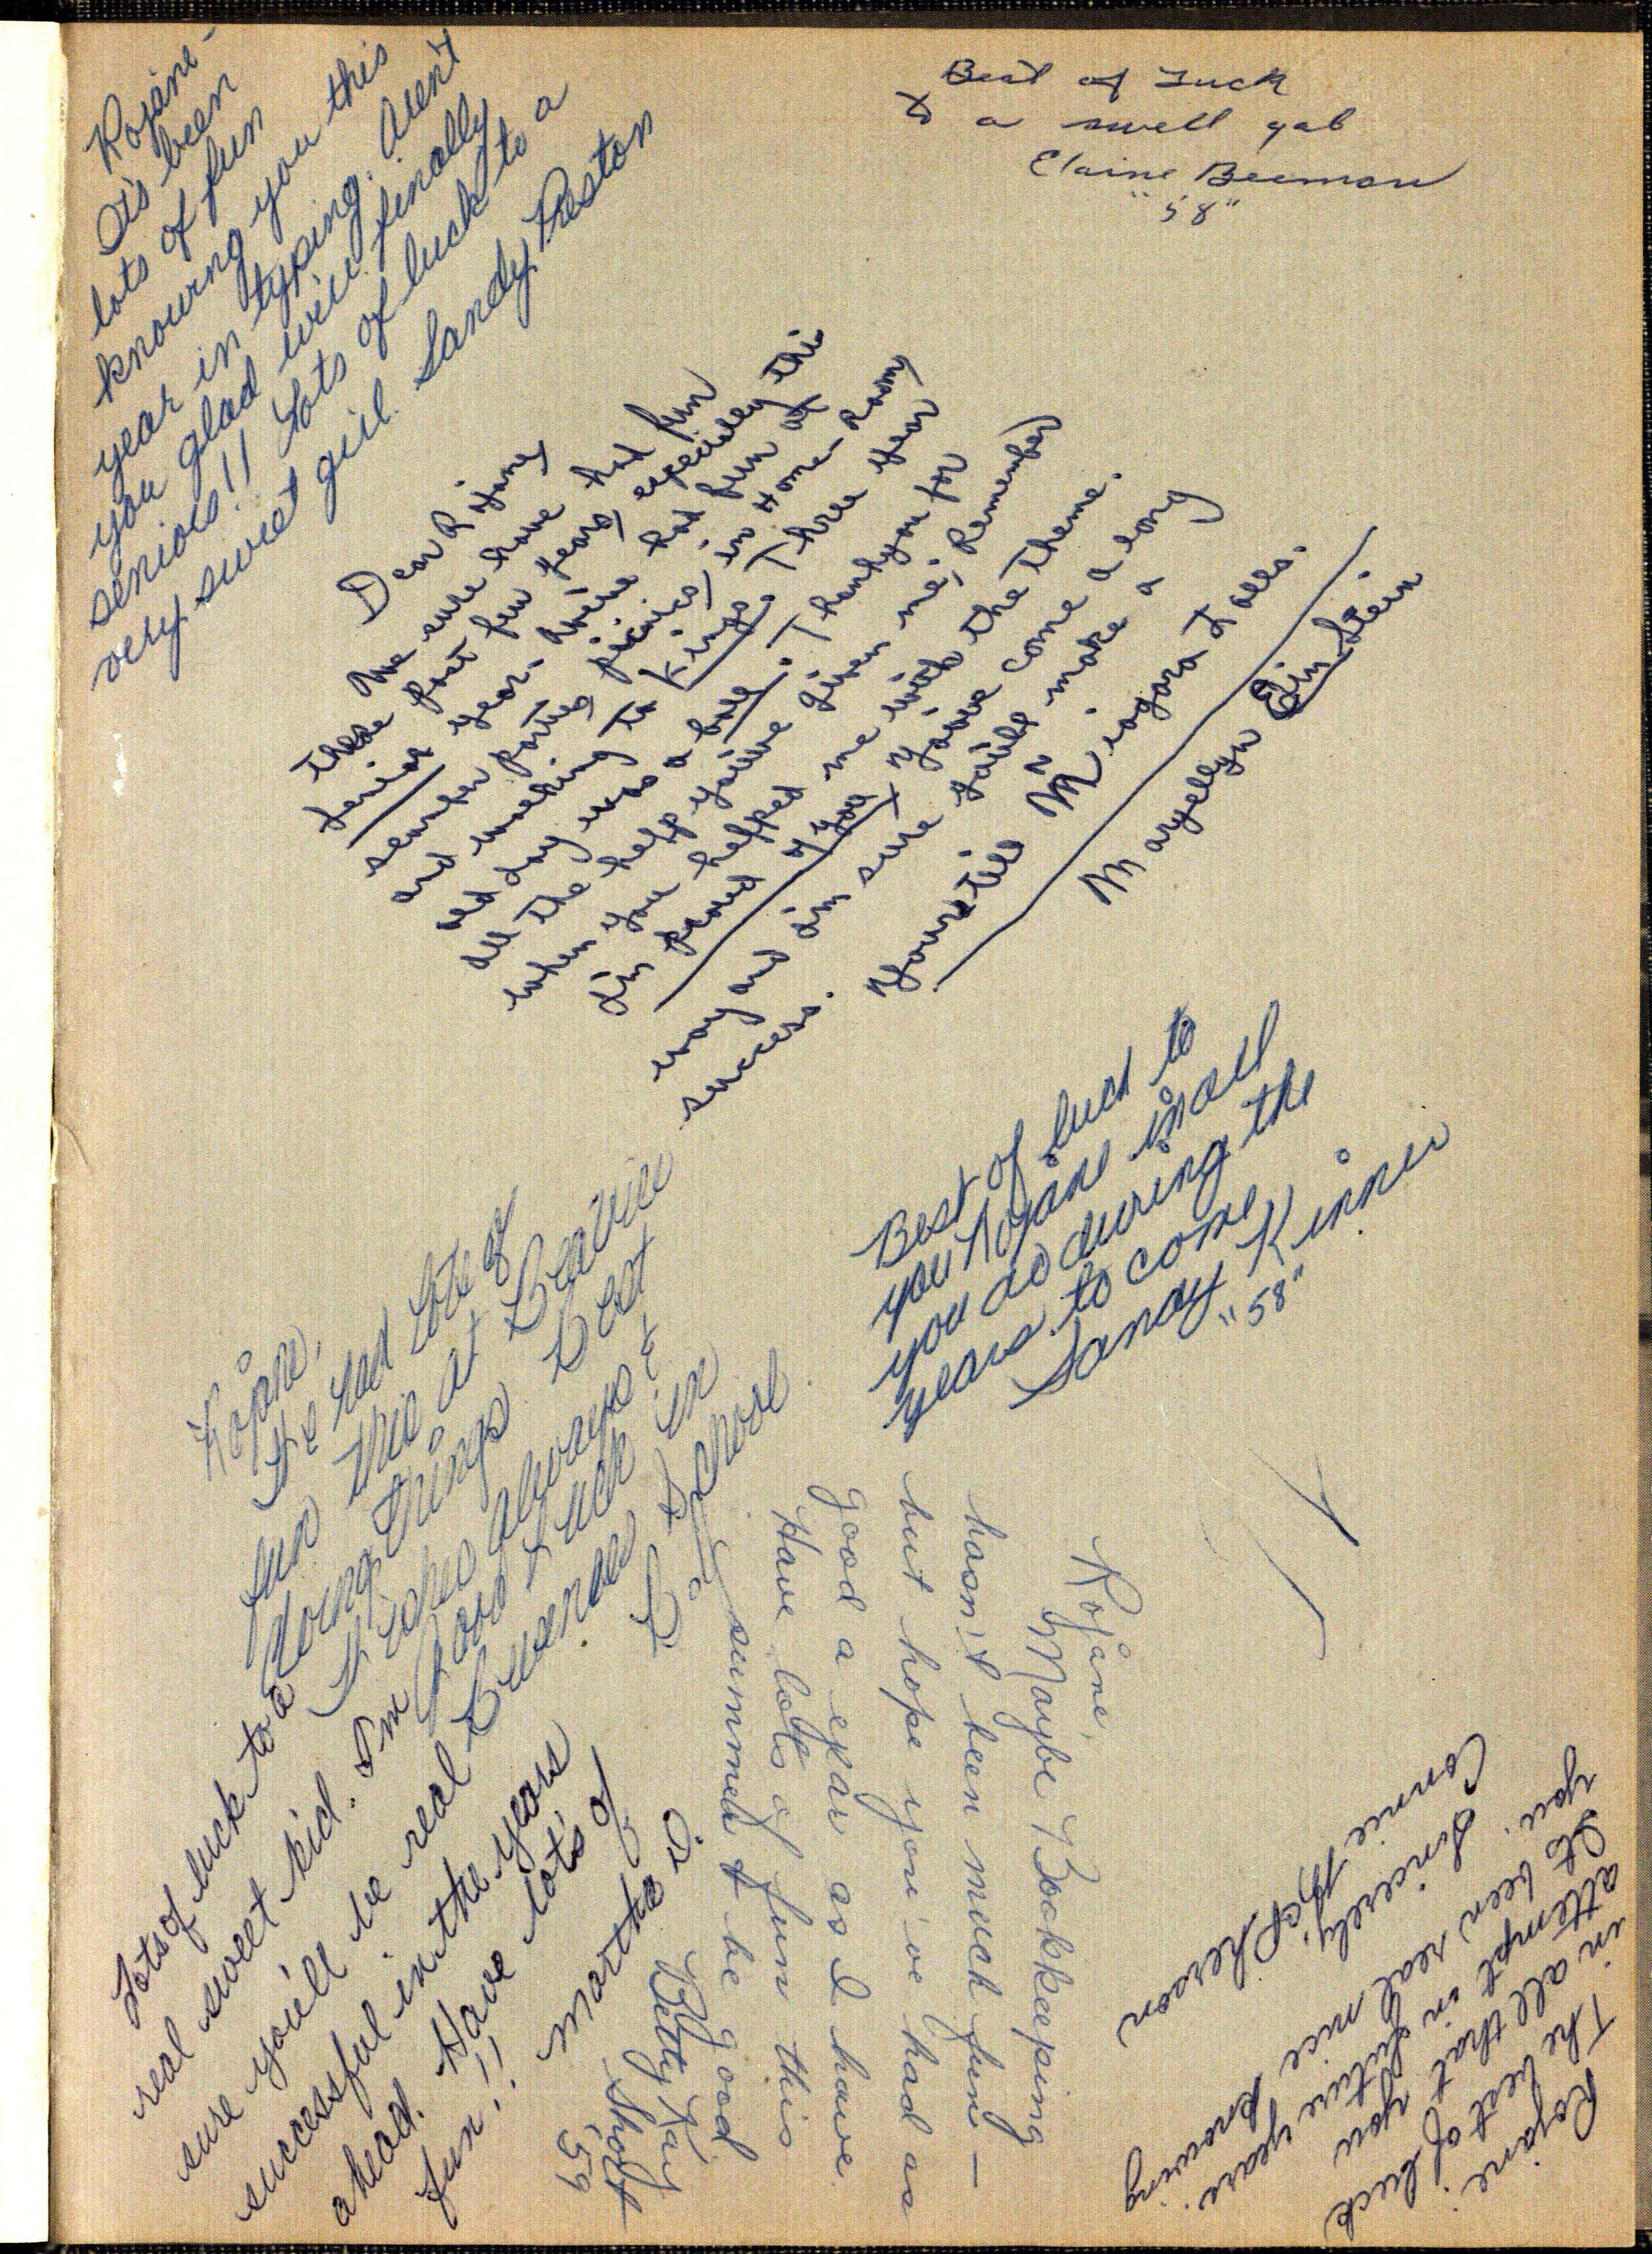 Rojane -
It's been
lots of fun
knowing you this
year in typing. Aren't
you glad we'll finally
seniors!! Lots of luck to a
very sweet girl. Sandy Preston
Best of Luck
to a swell gal
Elaine Beeman
"58"
Dear Rojane,
We sure have had fun
these past few years, especially this
senior year. We've had fun at
parties, picnics, in Home-Room,
and walking to Kings. Thoes year
old day was a ball. Thank you for
all the help you've given me, Remember
when you helped me with the theme.
I'm proud of you you've come a long
way and I'm sure you'll make a
success.
Yours till Niagara Falls.
Maryellyn Einstein
Best of luck to
you Rojane in all
you do during the
years to come
Sandy Kinner
"58"
Rojane,
I've had lots of
fun this at
doing things Best
Wishes always &
Good Luck in
Business School
Lots of luck to a
real sweet kid. I'm
sure you'll be real
successful in the years
ahead. Have lots of
fun!! Martha D.
Rojane,
Maybe Bookkeeping
hasn't been much fun —
but hope you've had as
good a year as I have.
Have lots of fun this
summer & be good
Betty Kay
Short
59
Rojane,
The best of luck
in all that you
attempt in future years.
It's been real nice knowing
you.
Sincerely,
Connie McPherson